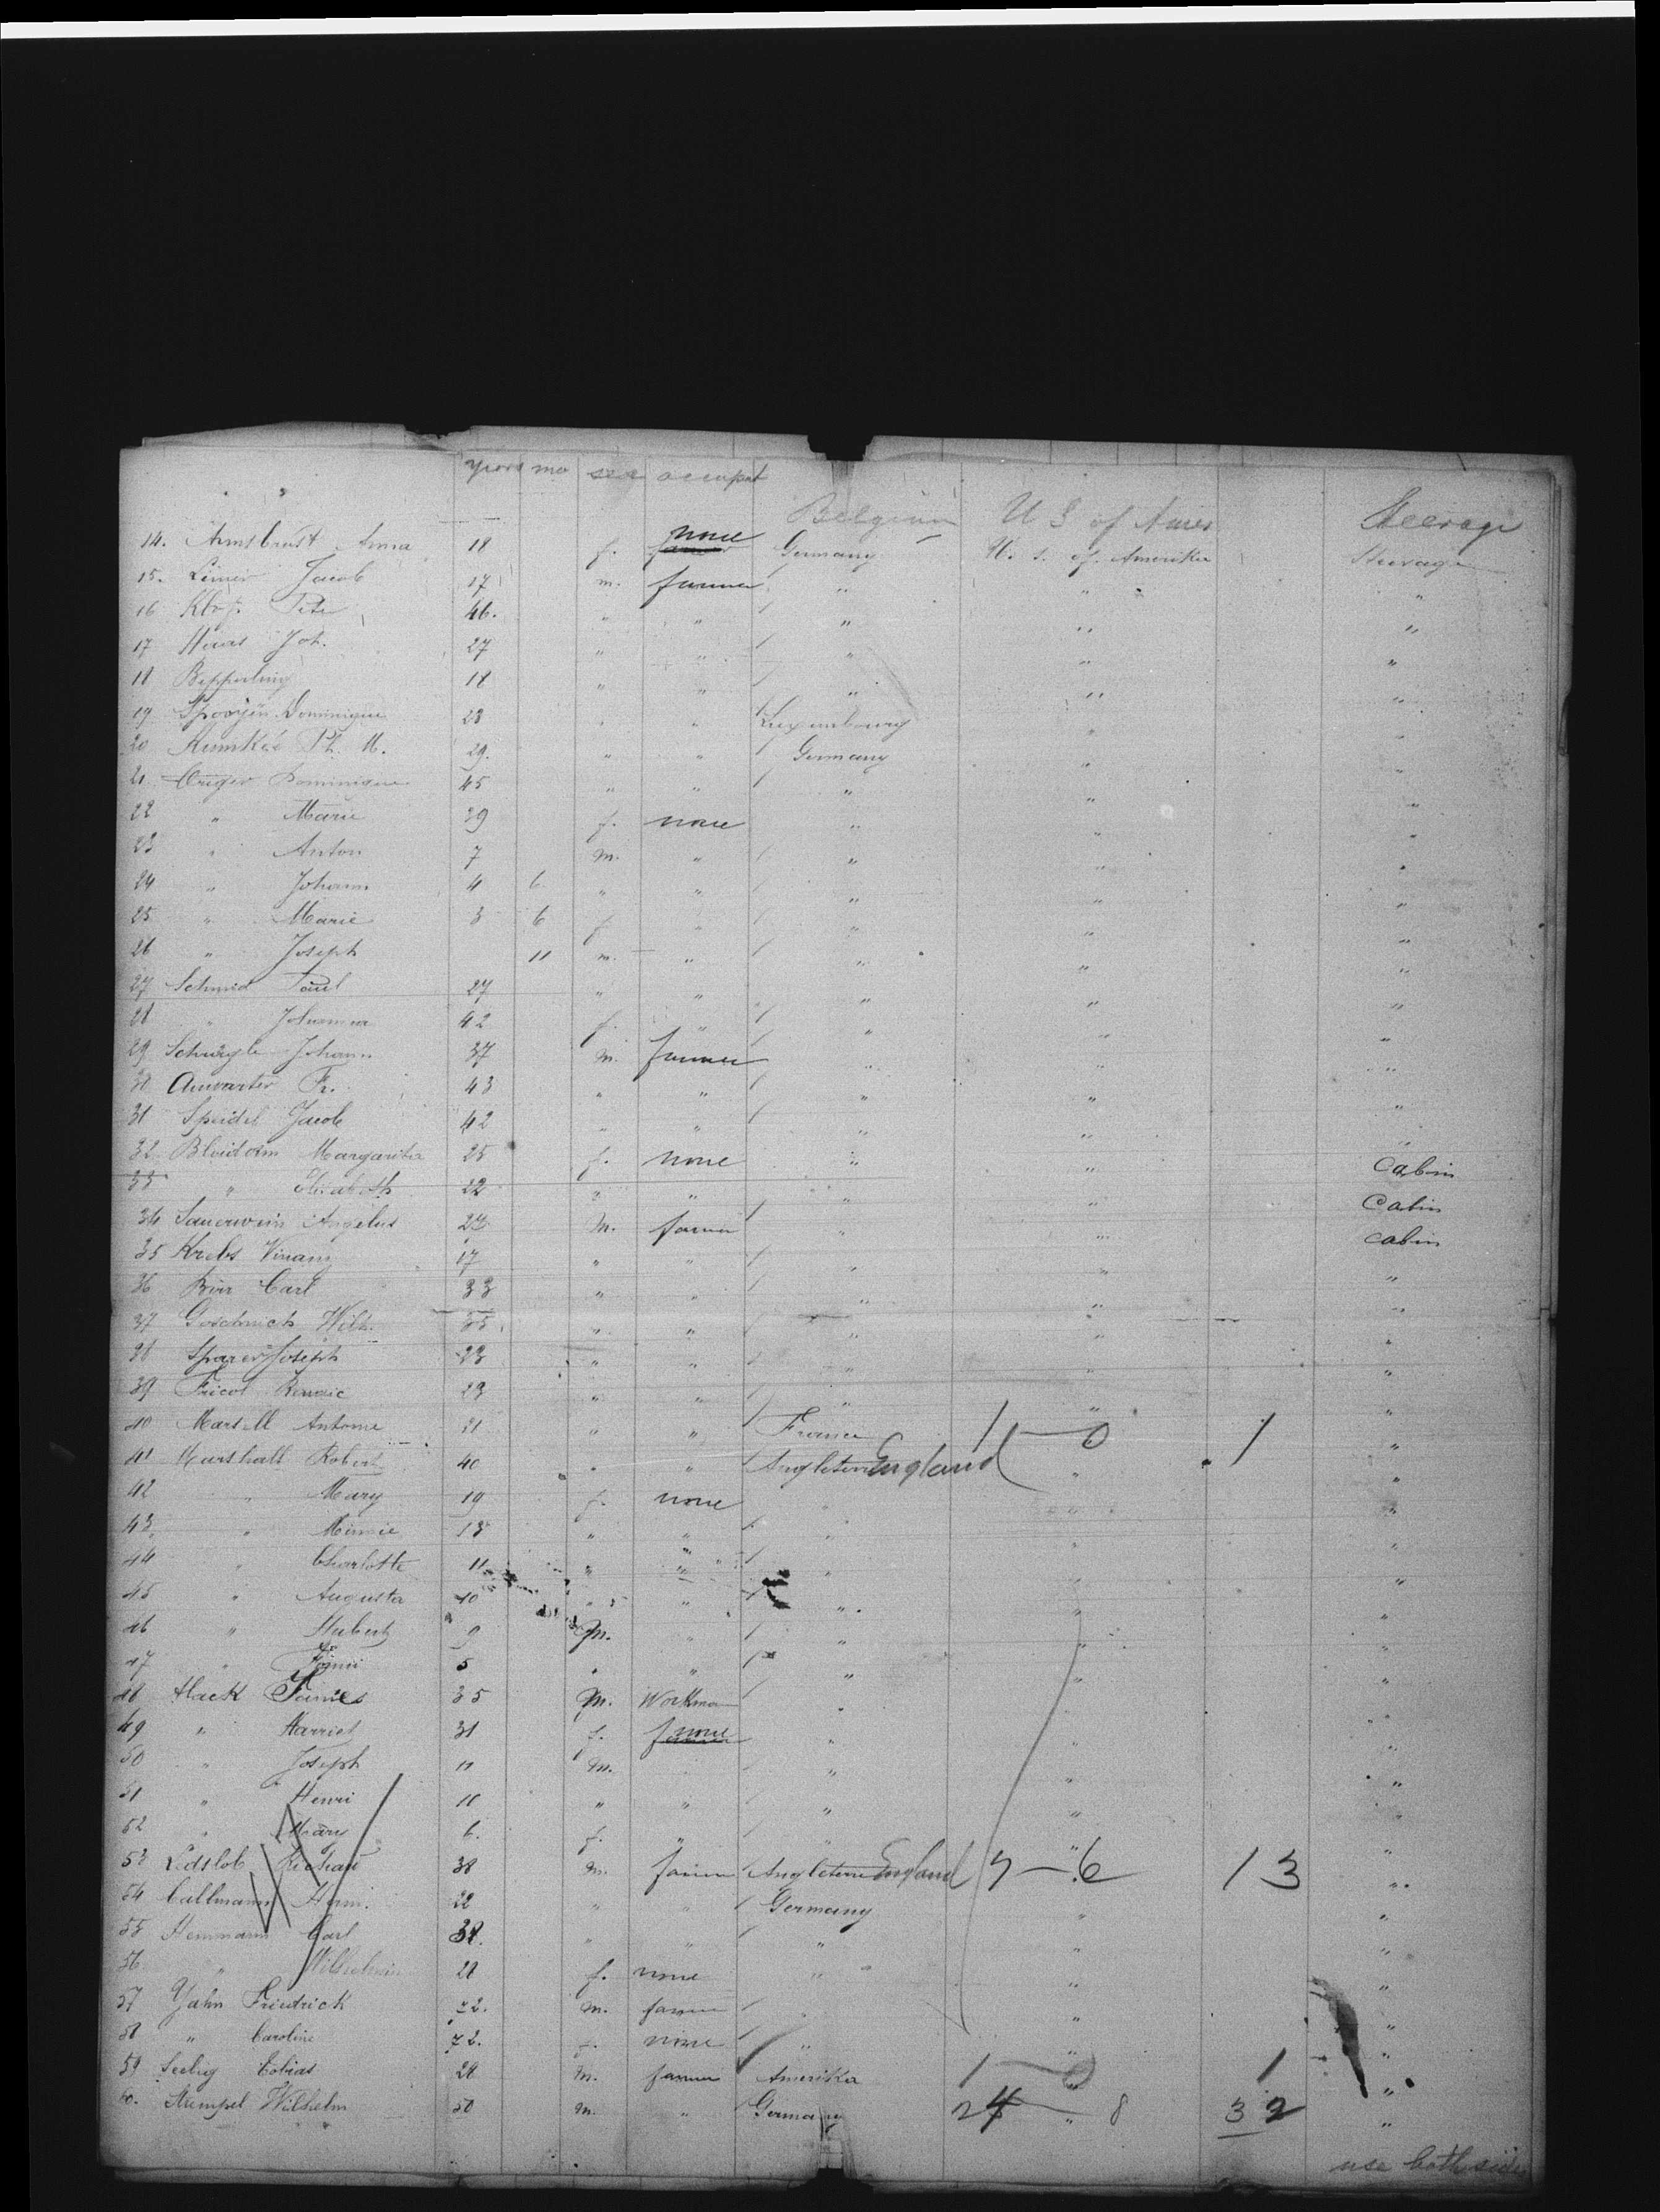 years mo sex occupat
Belgium U S of Amer Steerage
14. Armsbrust Anna 18 f. none farmer Germany U. S. of Amerika Steerage
15. Jacob 17 m. farmer " " "
16 Peter 46. " " " " "
17 Haas Joh. 27 " " " " "
18 Bepperling 18 " " " " "
19 Dominique 28 " " Luxembourg " "
20 Ph. M. 29. " " Germany " "
21. Dominique 45 " " " " "
22 " Marie 39 f. none " " "
23 " Anton 7 m. " " " "
24 " Johann 4 6 " " " " "
25 " Marie 3 6 f " " " "
26 " Joseph 11 m. " " " "
27 Schmid Paul 27 " " " " "
28 " Johanna 42 f. " " " "
29 Johann 37 m. farmer " " "
30 Anwarter Fr. 43 " " " " "
31 Speidel Jacob 42 " " " " "
32. Margaritha 25 f. none " " Cabin
33 " Elisabeth 22 " " " " Cabin
34 Sauerwein Angelus m. farmer " " Cabin
35 Krebs 17 " " " " "
36 Carl 33 " " " " "
37 Wilh. 35 " " " " "
38 Joseph 23 " " " " "
39 Fricot 23 " " " " "
40 Antoine 31 " " France 1 — 0 1 "
41 Marshall Robert 40 " " Angleterre England " "
42 " Mary 19 f. none " " "
43 " Minnie 13 " " " " "
44 " Charlotte 11 " " " " "
45 " Augusta 10 " " " " "
46 " Hubert 9 m. " " " "
47 " 5 " " " " "
48 Hack James 35 m. Workman " " "
49 " Harriet 31 f. none farmer " " "
50 " Joseph 11 m. " " " "
51 " Henri 10 " " " " "
52 " Mary 6. f. " " " "
53 38 m. farmer Angleterre England 7 — 6 13 "
54 Callmann 22 " " Germany " "
55 Hemmann Carl 38. " " " " "
56 " 28 f. none " " "
57 Yahn Friedrick m. farmer " " "
58 " Caroline f. none " " "
59 Seelig Tobias 28 m. farmer Amerika 1 — 0 1 "
60. Stempel Wilhelm 50 m. " Germany 24 — " 8 32 "
use both sides